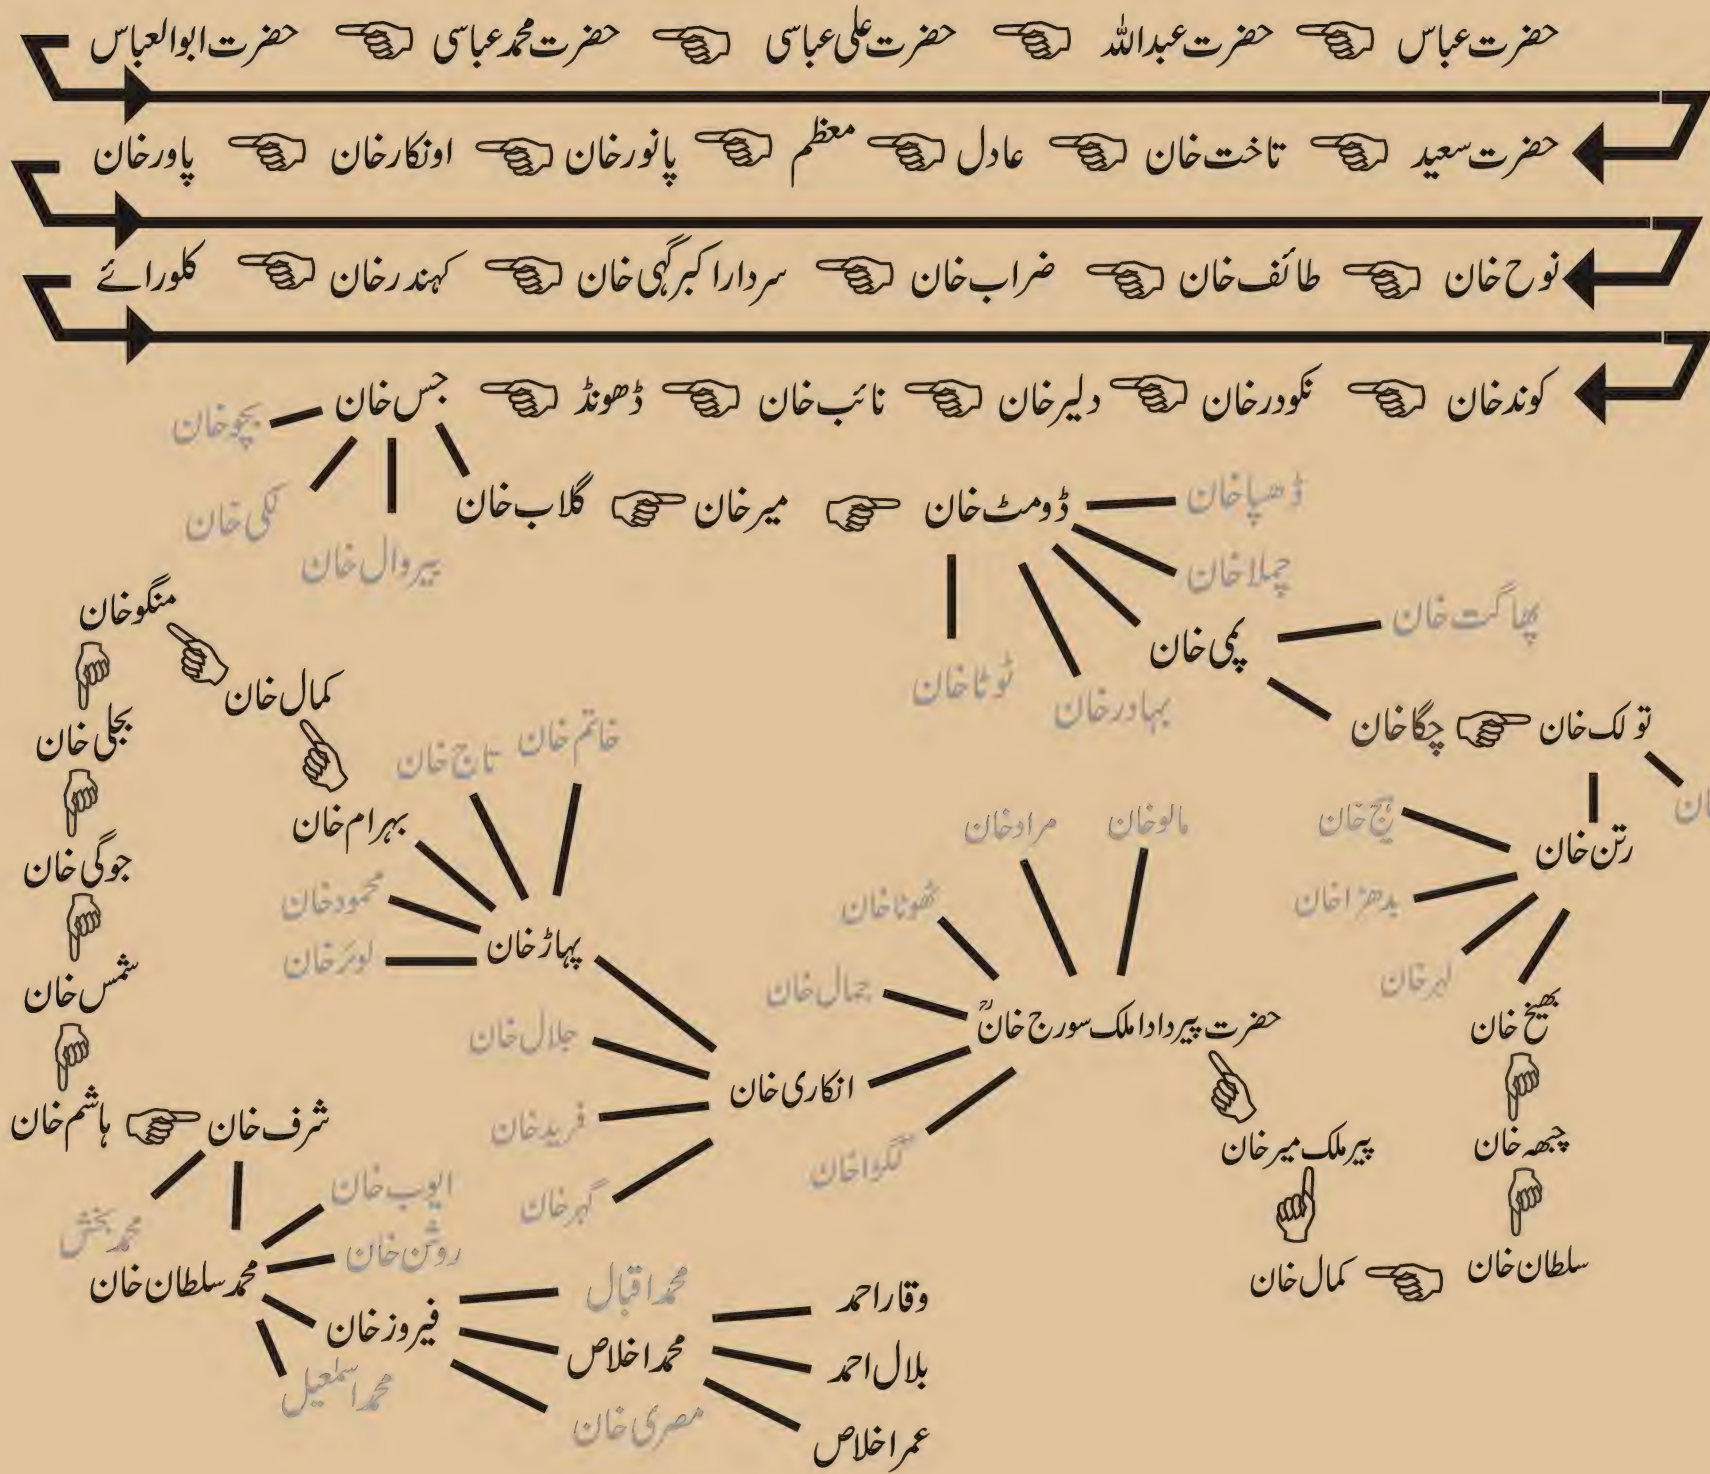 حضرت عباس حضرت عبداللہ حضرت علی عباسی حضرت محمد عباسی حضرت ابوالعباس
حضرت سعید تاخت خان عادل معظم پانور خان اونکار خان پاور خان
نوح خان طائف خان ضراب خان سردار اکبر گہی خان کہندر خان کلورائے
کوند خان نکودر خان دلیر خان نائب خان ڈھونڈ جس خان
بچو خان
لکی خان
پیروال خان
گلاب خان میر خان ڈومٹ خان ڈھپا خان
چملا خان
پمی خان پھاگت خان
بہادر خان
ٹوٹا خان
چگا خان تولک خان
رتن خان
بدھڑا خان
لہر خان
بھیخ خان
چبھہ خان
سلطان خان
کمال خان
پیر ملک میر خان
حضرت پیر دادا ملک سورج خانؒ
مالو خان
مراد خان
ٹھوٹا خان
جمال خان
انکاری خان
پہاڑ خان
جلال خان
فرید خان
گہر خان
خاتم خان
تاج خان
بہرام خان
محمود خان
لوئر خان
کمال خان
منگو خان
بجلی خان
جوگی خان
شمس خان
ہاشم خان شرف خان
محمد بخش
محمد سلطان خان
ایوب خان
روشن خان
فیروز خان
محمد اسمٰعیل
محمد اقبال
محمد اخلاص
مصری خان
وقار احمد
بلال احمد
عمر اخلاص